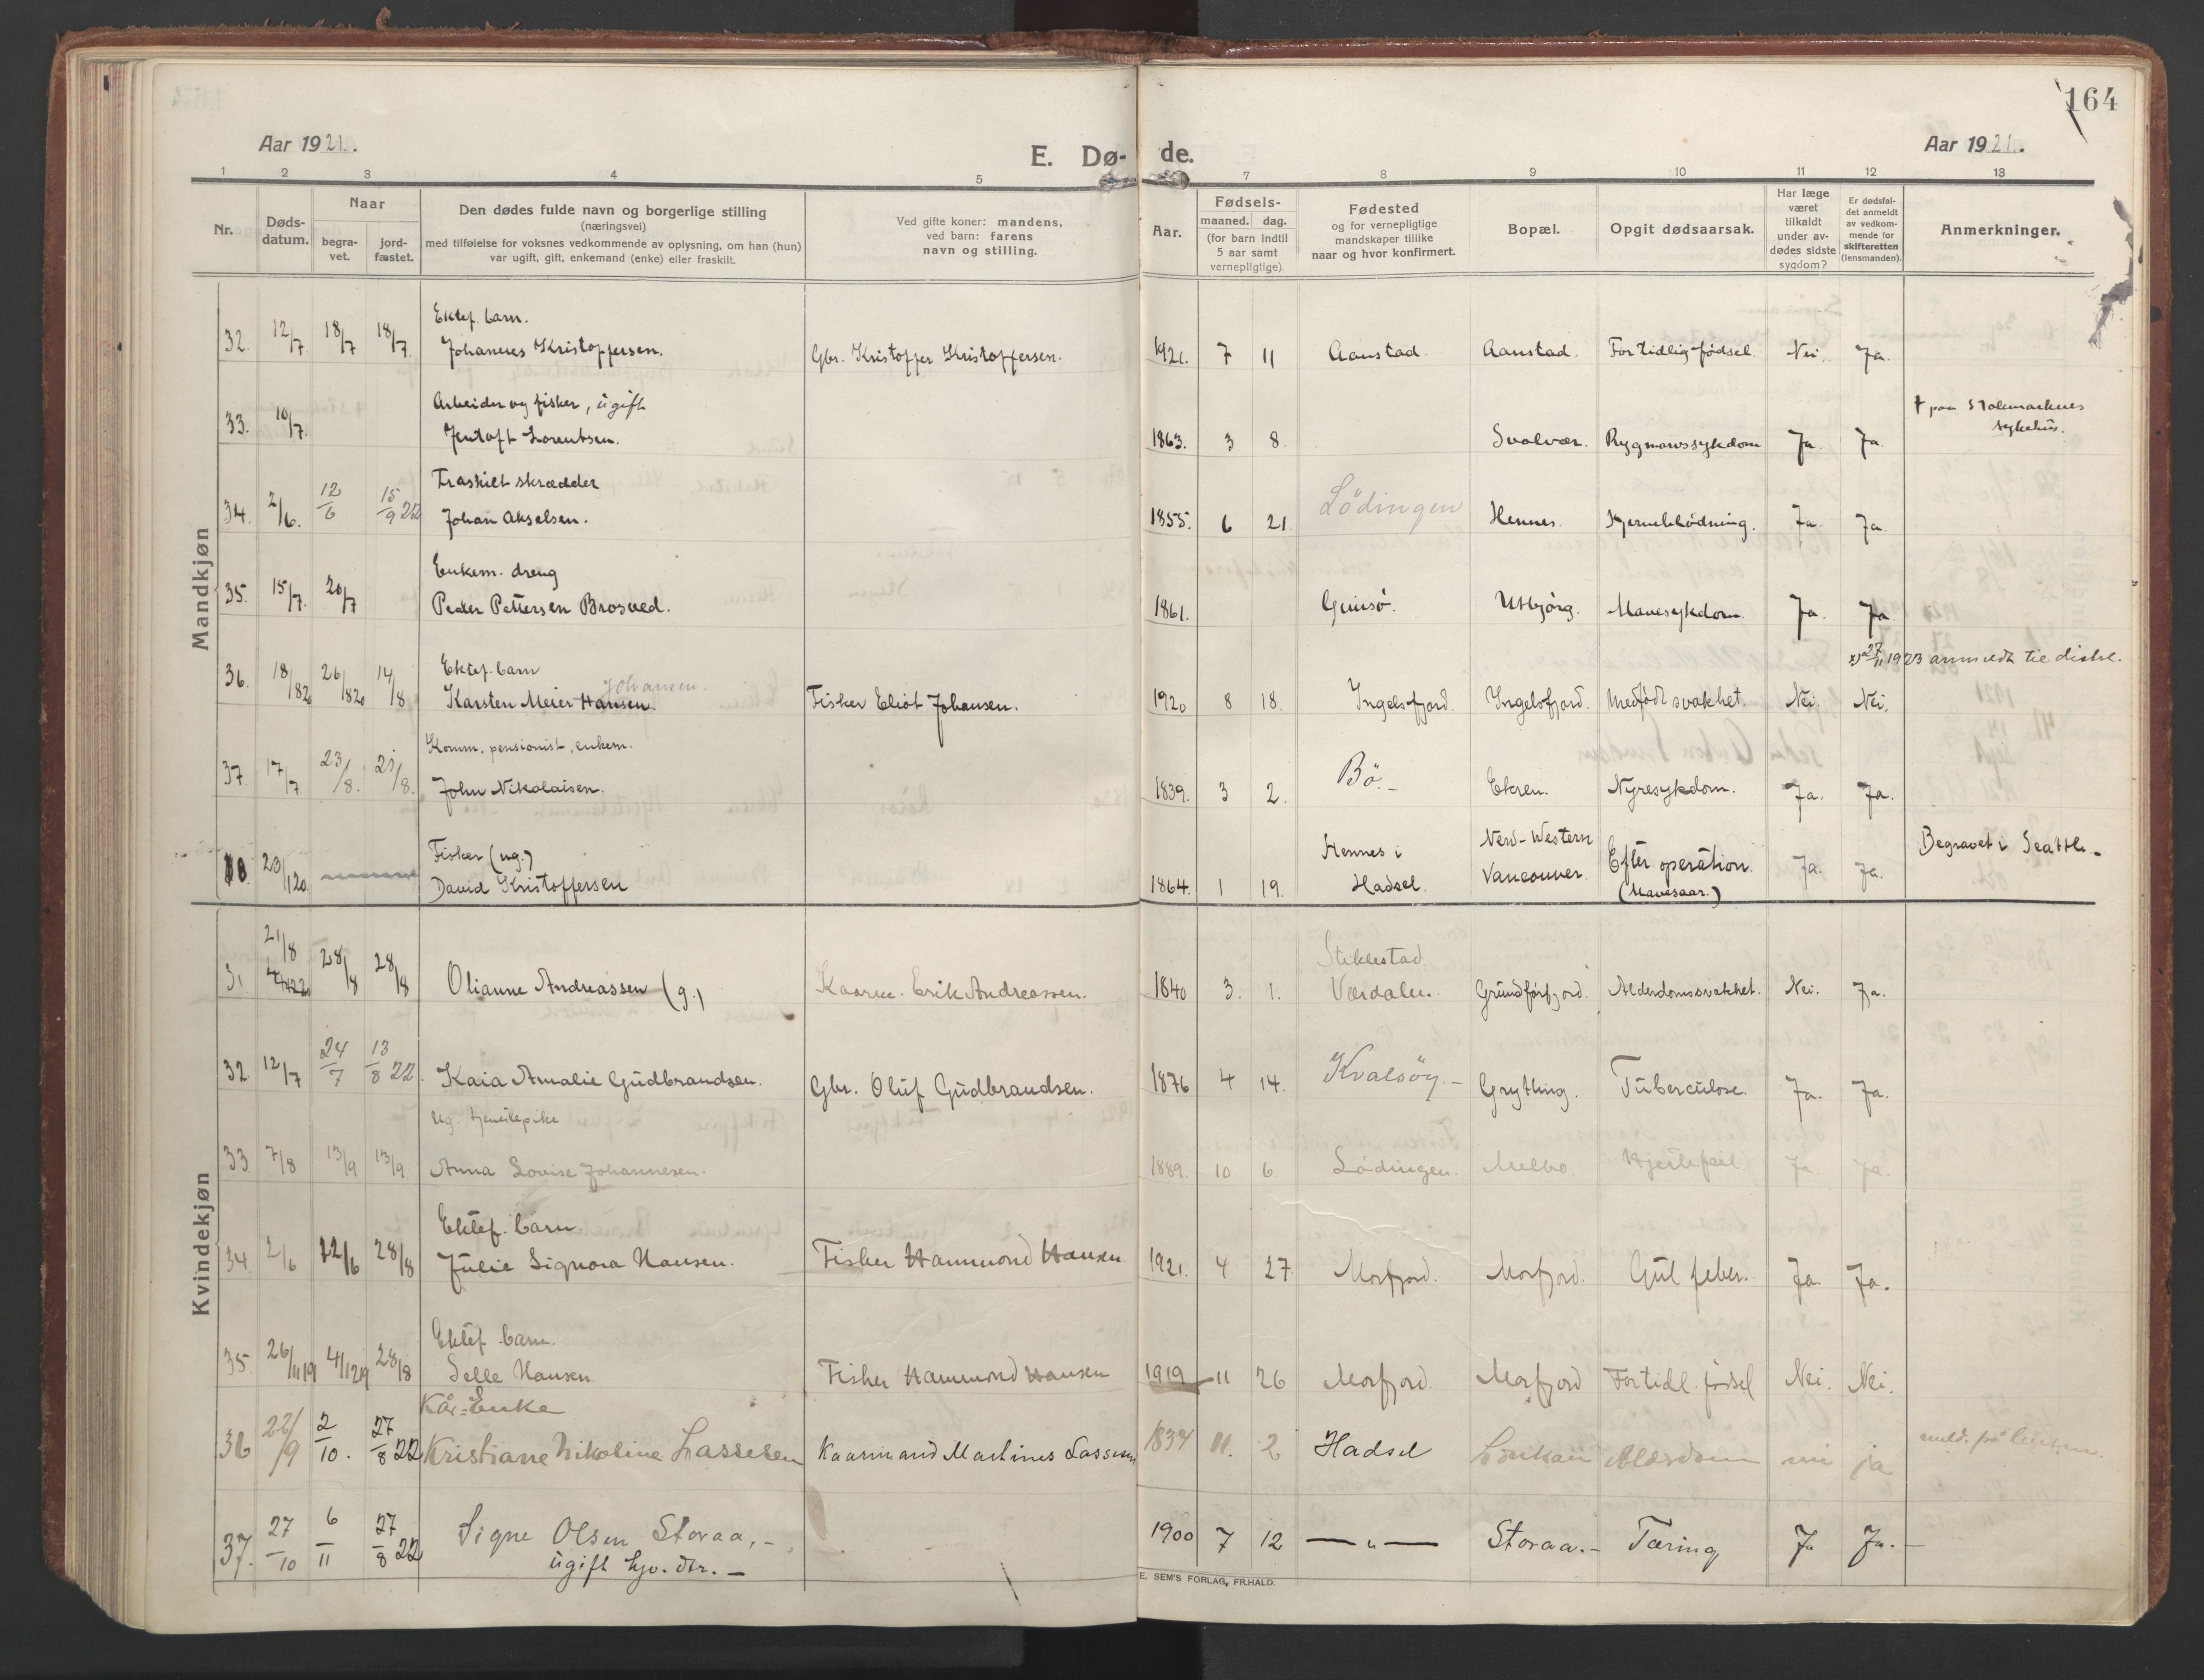 164
Aar 1921.
E. Dø- de.
Aar 1921.
1 2 3 4 5 7 8 9 10 11 12 13
Nr.
Døds-datum.
Naar
begra-vet.
jord-fæstet.
Den dødes fulde navn og borgerlige stilling
(næringsvei)
med tilføielse for voksnes vedkommende av oplysning, om han (hun)
var ugift, gift, enkemand (enke) eller fraskilt.
Ved gifte koner: mandens,
ved barn: farens
navn og stilling.
Aar.
Fødsels-
maaned. dag.
(for barn indtil
5 aar samt
vernepligtige)
Fødested
og for vernepligtige
mandskaper tillike
naar og hvor konfirmert.
Bopæl.
Opgit dødsaarsak.
Har læge
været
tilkaldt
under av-
dødes sidste
sygdom?
Er dødsfal-
det anmeldt
av vedkom-
mende for
skifteretten
(lensmanden).
Anmerkninger.
Mandkjøn
Ektef. barn.
32. 12/7 18/7 18/7 Johannes Kristoffersen. Gbr. Kristoffer Kristoffersen. 1921. 7 11 Aanstad. Aanstad. For tidlig fødsel. Nei. Ja.
Arbeider og fisker, ugift † paa Stokmarknes
sykehus.
33. 10/7. Jentoft Lorentsen. 1863. 3 8. Svolvær. Rygmarvssykdom Ja. Ja.
Fraskilt skrædder
34. 2/6. 12/6 15/9 22 Johan Akselsen. 1855. 6 21. Lödingen Hennes. Hjerneblödning. Ja. Ja.
Enkem. dreng
35. 15/7. 20/7 Peder Pettersen Brosved. 1861. Gimsö. Utbjörg. Mavesykdom. Ja. Ja.
27/11 1923 anmeldt
Ektef. barn
Johansen.
36. 18/820 26/820 14/8 Karsten Meier Hansen. Fisker Eliot Johansen. 1920 8 18. Ingelsfjord. Ingelsfjord. Medfödt svakhet. Nei. Nei.
Komm. pensionist, enkem.
37. 17/7 23/8. 21/8. John Nikolaisen. 1839. 3 2. Bö. Ekren. Nyresykdom. Ja. Ja.
Fisker (ug.) New-Western Begravet i Seattle.
23/120. David Kristoffersen 1864. 1 19. Hennes i
Hadsel. Vancouver. Efter operation.
(Mavesaar.) Ja. Ja.
Kvindekjøn
21/8
31. 28/8 28/8 Olianne Andreassen (g.) Kaarm. Erik Andreassen. 1840 3. 1. Stiklestad
Værdalen. Grundforfjord. Alderdomssvakhet. Nei. Ja.
32. 12/7 24/7 13/8 22. Kaia Amalie Gudbrandsen. Gbr. Oluf Gudbrandsen. 1876 4 14. Kvalsöy. Grytting. Tuberculose. Ja. Ja.
Ug. tjenestepike
33 7/8 13/9 13/9. Anna Lovise Johannesen. 1889. 10 6 Lödingen. Melbo. Hjertefeil. Ja. Ja.
Ektef. barn
34. 2/6 12/6 28/8 Julie Signora Hansen. Fisker Hammond Hansen 1921. 4 27 Morfjord. Morfjord. Gul feber. Ja. Ja.
Ektef. barn.
35. 26/1119 4/1219 28/8 Selle Hansen. Fisker Hammond Hansen 1919 11 26 Morfjord. Morfjord For tidl. fødsel Nei. Nei.
Kår-Enke
36 22/9 2/10. 27/8 22 Kristiane Nikoline Lassesen Kaarmand Martinus Lassesen 1834 11. 2 Hadsel Alderdom nei ja
37. 27/10 6/11 27/8 22 Signe Olsen Storaa, 1900 7 12 — " — Storaa. Tæring Ja Ja.
ugift
E. SEM'S FORLAG, FR.HALD.